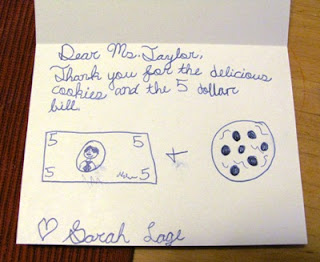 Dear Ms. Taylor,
Thank you for the delicious
cookies and the 5 dollar
bill.
5 5
5 5
+
♡ Sarah Lage